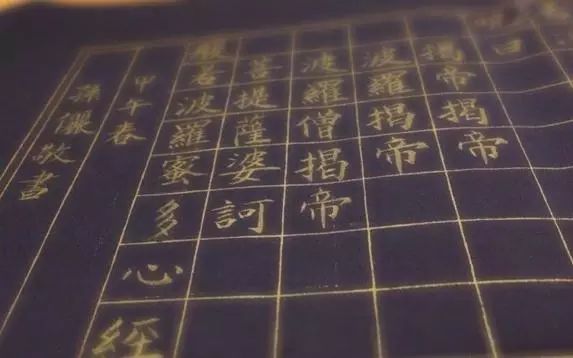 曰
揭帝揭帝
波羅揭帝
波羅僧揭帝
菩提薩婆訶
般若波羅蜜多心經
甲午春
孫儷敬書